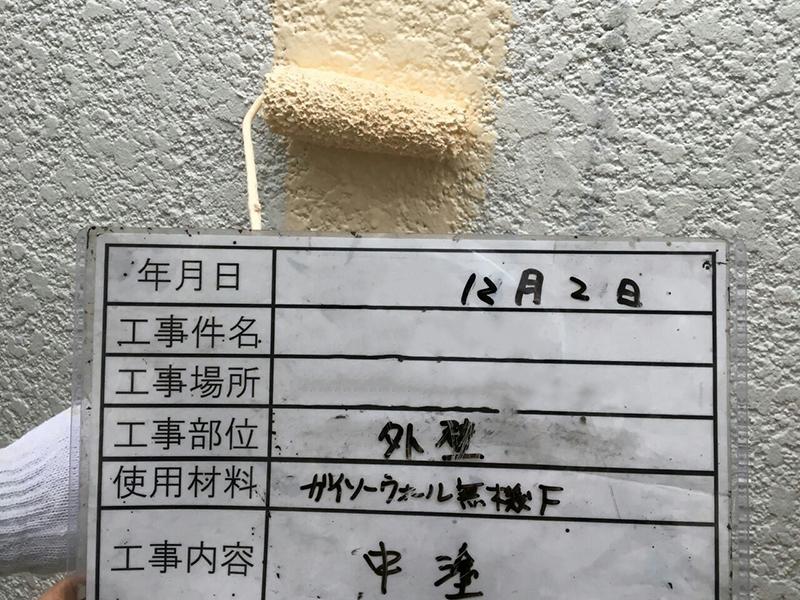 年月日 12月2日
工事件名
工事場所
工事部位 外壁
使用材料 ガイソーウォール無機F
工事内容 中塗